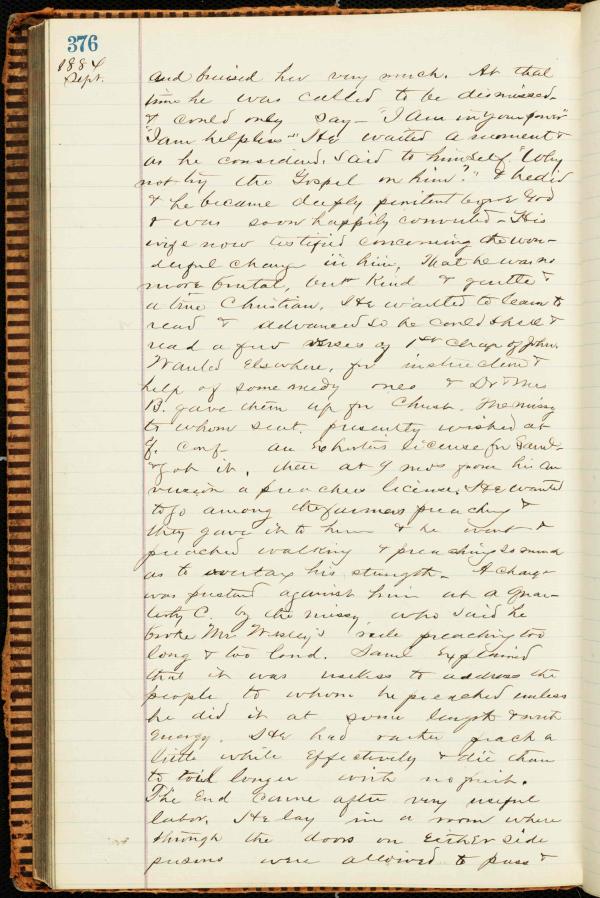 376
1884
Sept.
and bruised her very much. At that
time he was called to be dismissed-
& could only say - "I am in your power"
"I am helpless" - He waited a moment &
as he considered, said to himself. "Why
not try the Gospel on him?" & he did
& he became deeply penitent before God
& was soon happily converted - His
wife now testified concerning the won-
derful change in him, That he was no
more brutal, but kind & gentle &
a true Christian. He wanted to learn to
read & advanced so he could spell &
read a few verses of 1st Chap of John.
Wanted elsewhere, for instruction &
help of some needy ones & Dr & Mrs
B. gave them up for Christ. The missy
to whom sent. presently wished at
Q. conf - an Exhorter's license for Saml.
& got it, then at 9 mos from his con
version a preachers license. He wanted
to go among the farmers preaching &
they gave it to him & he went &
preached walking & preaching so much
as to overtax his strength - A charge
was against him at a Quar-
terly C. by the missy who said he
broke Mr. Wesley's rule preaching too
long & too loud. Saml explained
that it was useless to address the
people to whom he preached unless
he did it at some length & with
Energy. He had rather preach a
little while Effectively & die than
to toil longer with no fruit.
The End came after very useful
labor. He lay in a room where
through the doors on Either side
persons were allowed to pass &